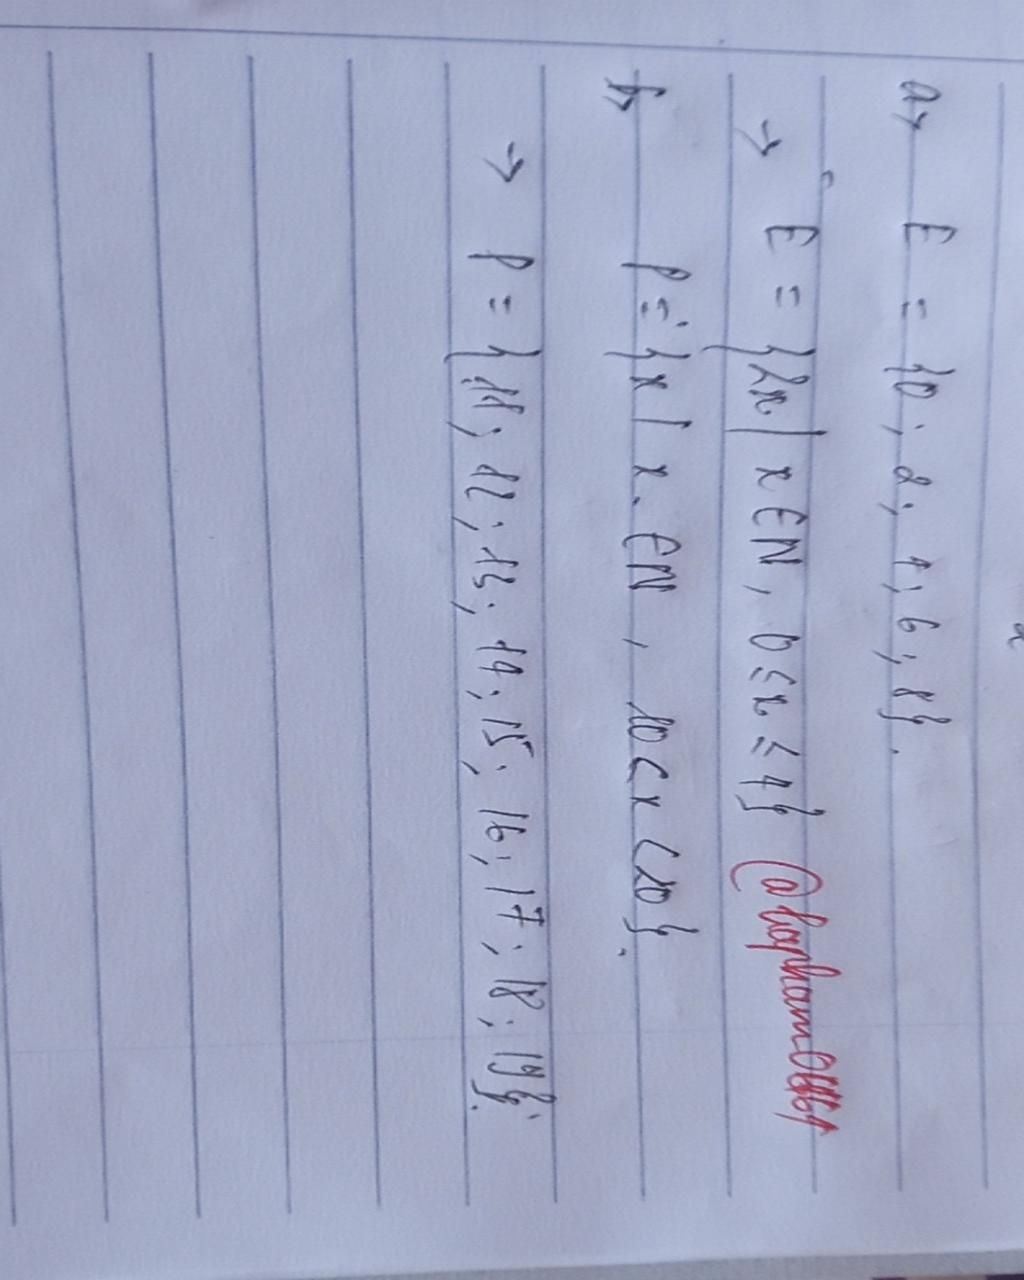 a, E = {0; 2; 4; 6; 8}.
→ E = {2x | x ∈ N, 0 ≤ x ≤ 4}
b, P = {x | x ∈ N, 10 < x < 20}.
→ P = {11; 12; 13; 14; 15; 16; 17; 18; 19}.